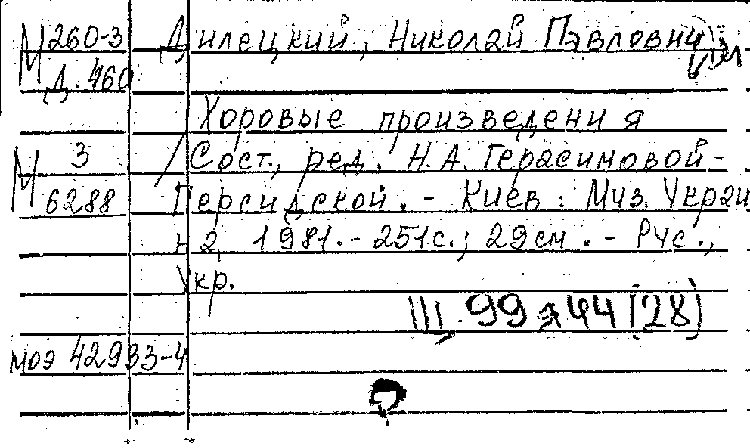 М 260-3 Дилецкий, Николай Павлович
Д. 460
Хоровые произведения
М 3 / Сост., ред. Н.А. Герасимовой-
6288 Персидской. - Киев : Муз. Украї
на, 1981. - 251с.; 29см. - Рус.,
Укр.
III 99 44 (28)
моэ 42933-4